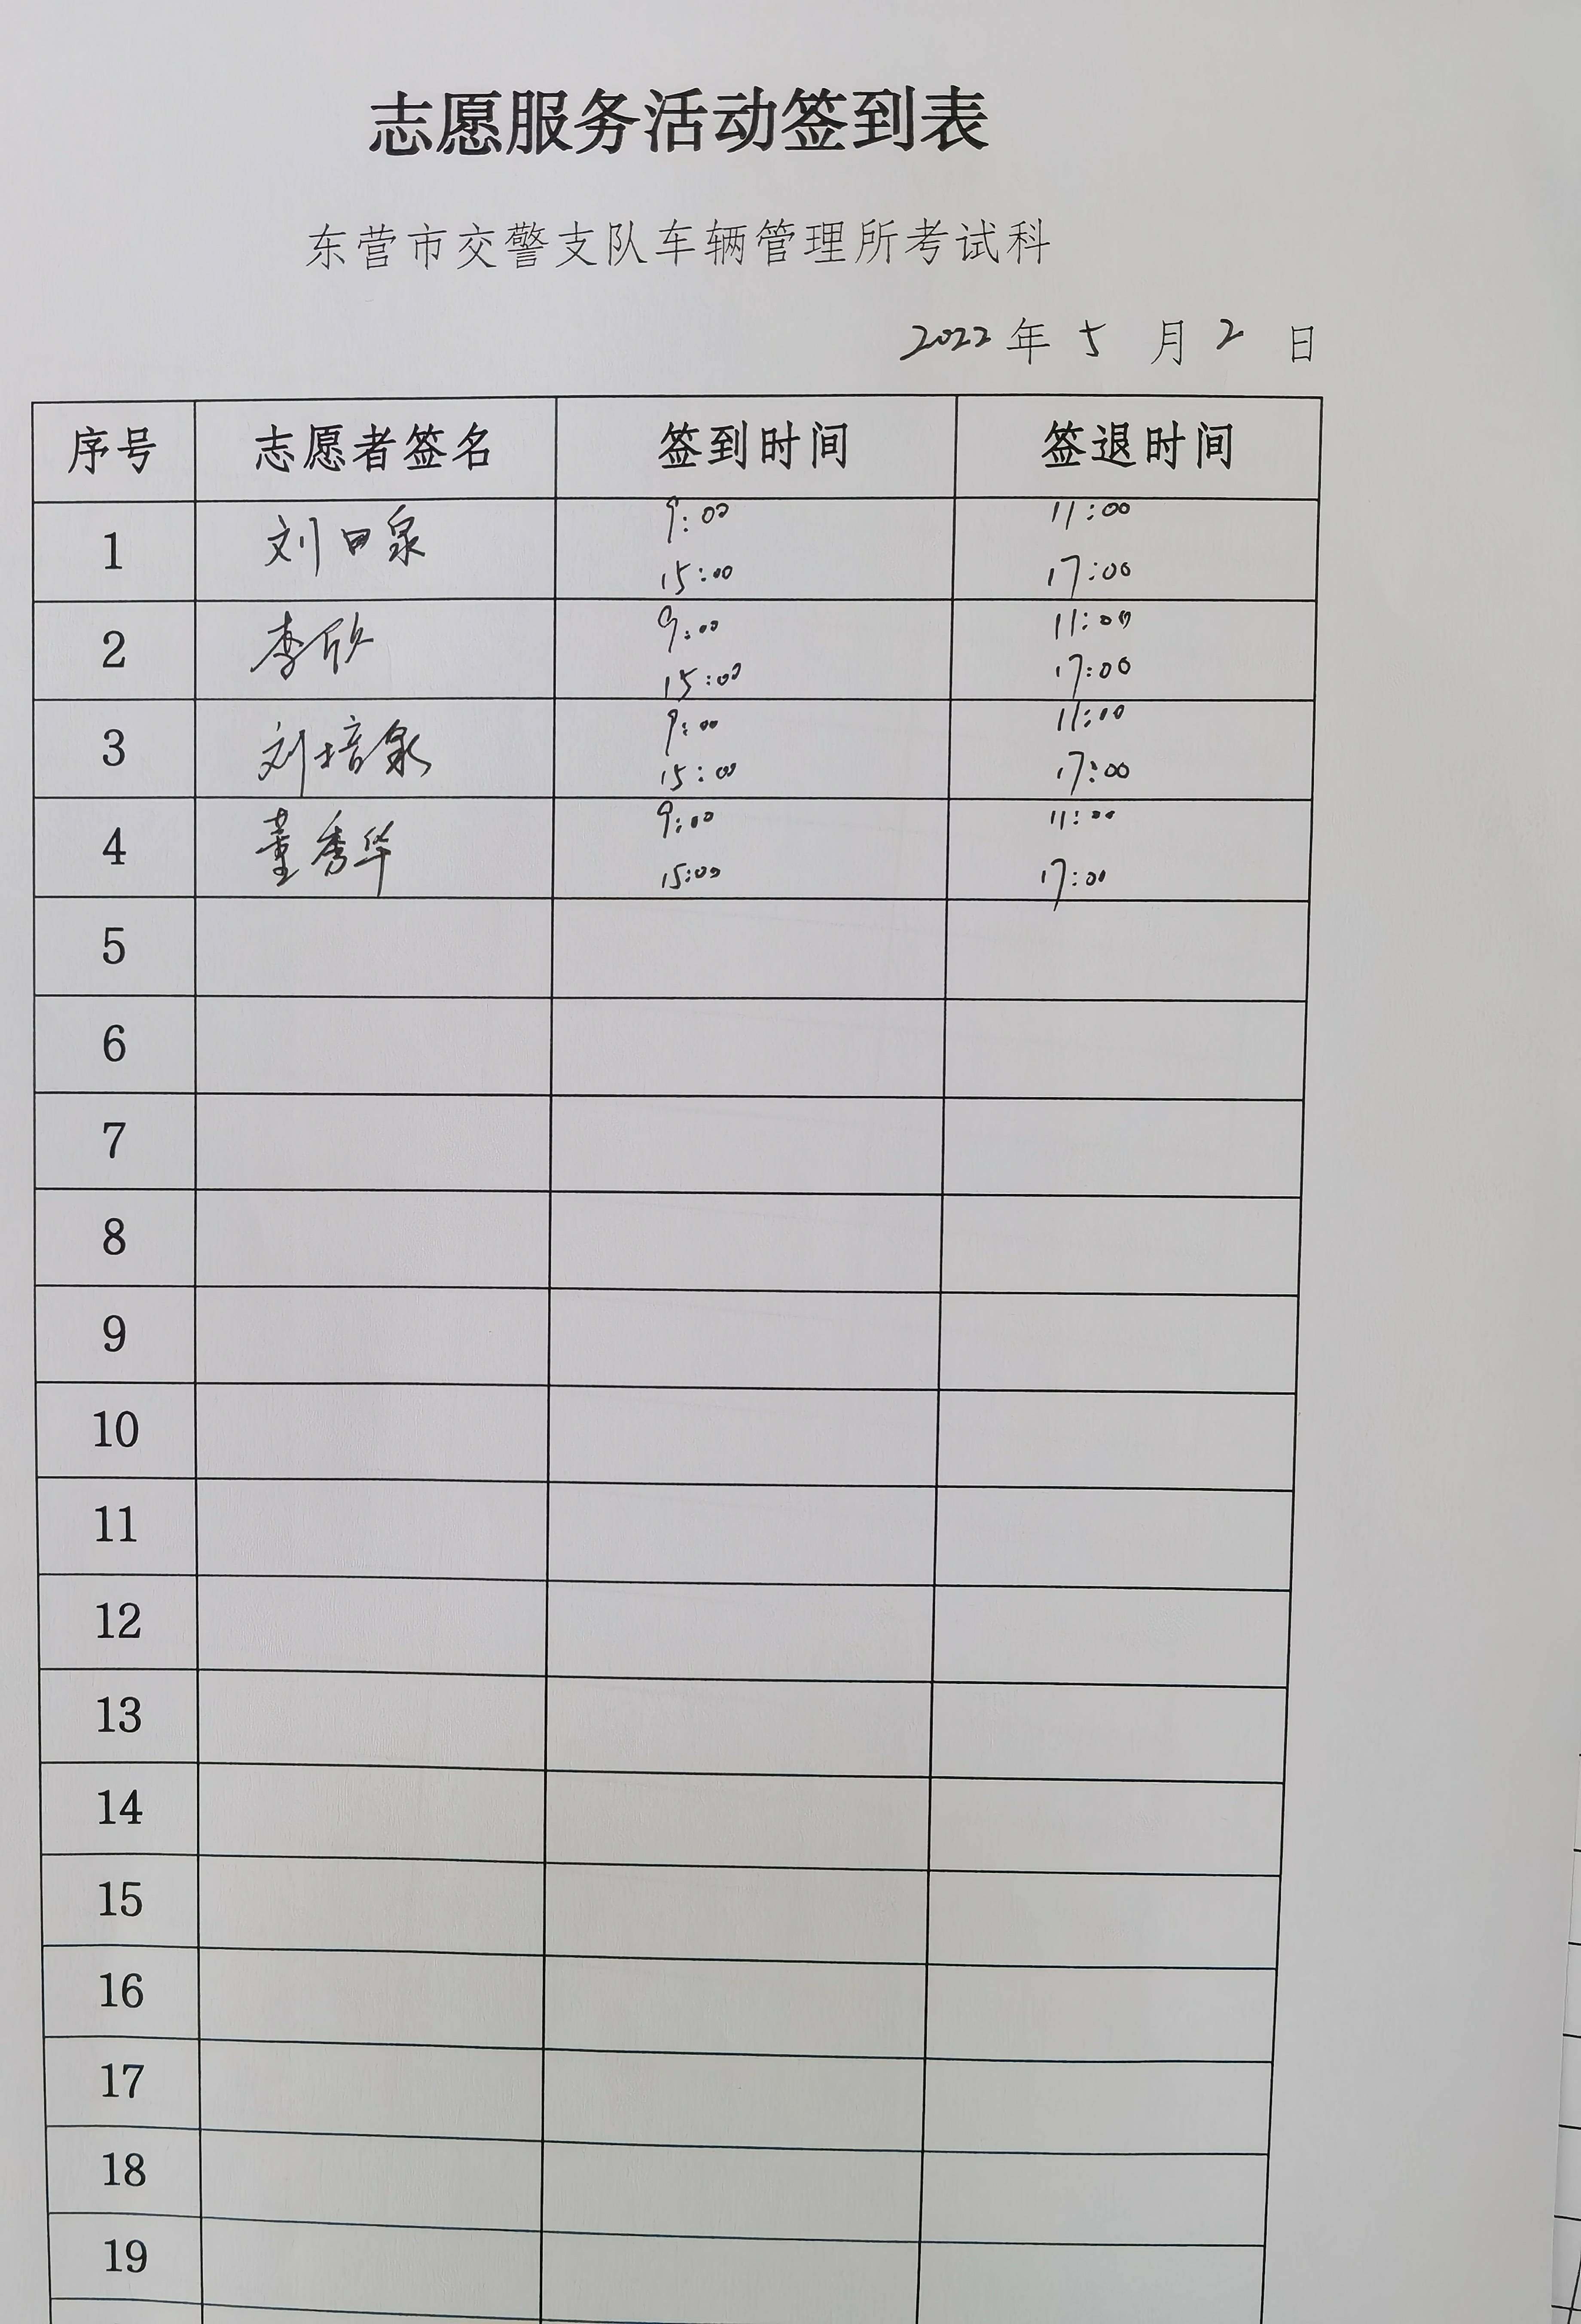 志愿服务活动签到表
东营市交警支队车辆管理所考试科
2022 年 5 月 2 日
序号 志愿者签名 签到时间 签退时间
1 刘日泉 9:00 11:00
15:00 17:00
2 李欣 9:00 11:00
15:00 17:00
3 刘培泉 9:00 11:00
15:00 17:00
4 董秀华 9:00 11:00
15:00 17:00
5
6
7
8
9
10
11
12
13
14
15
16
17
18
19